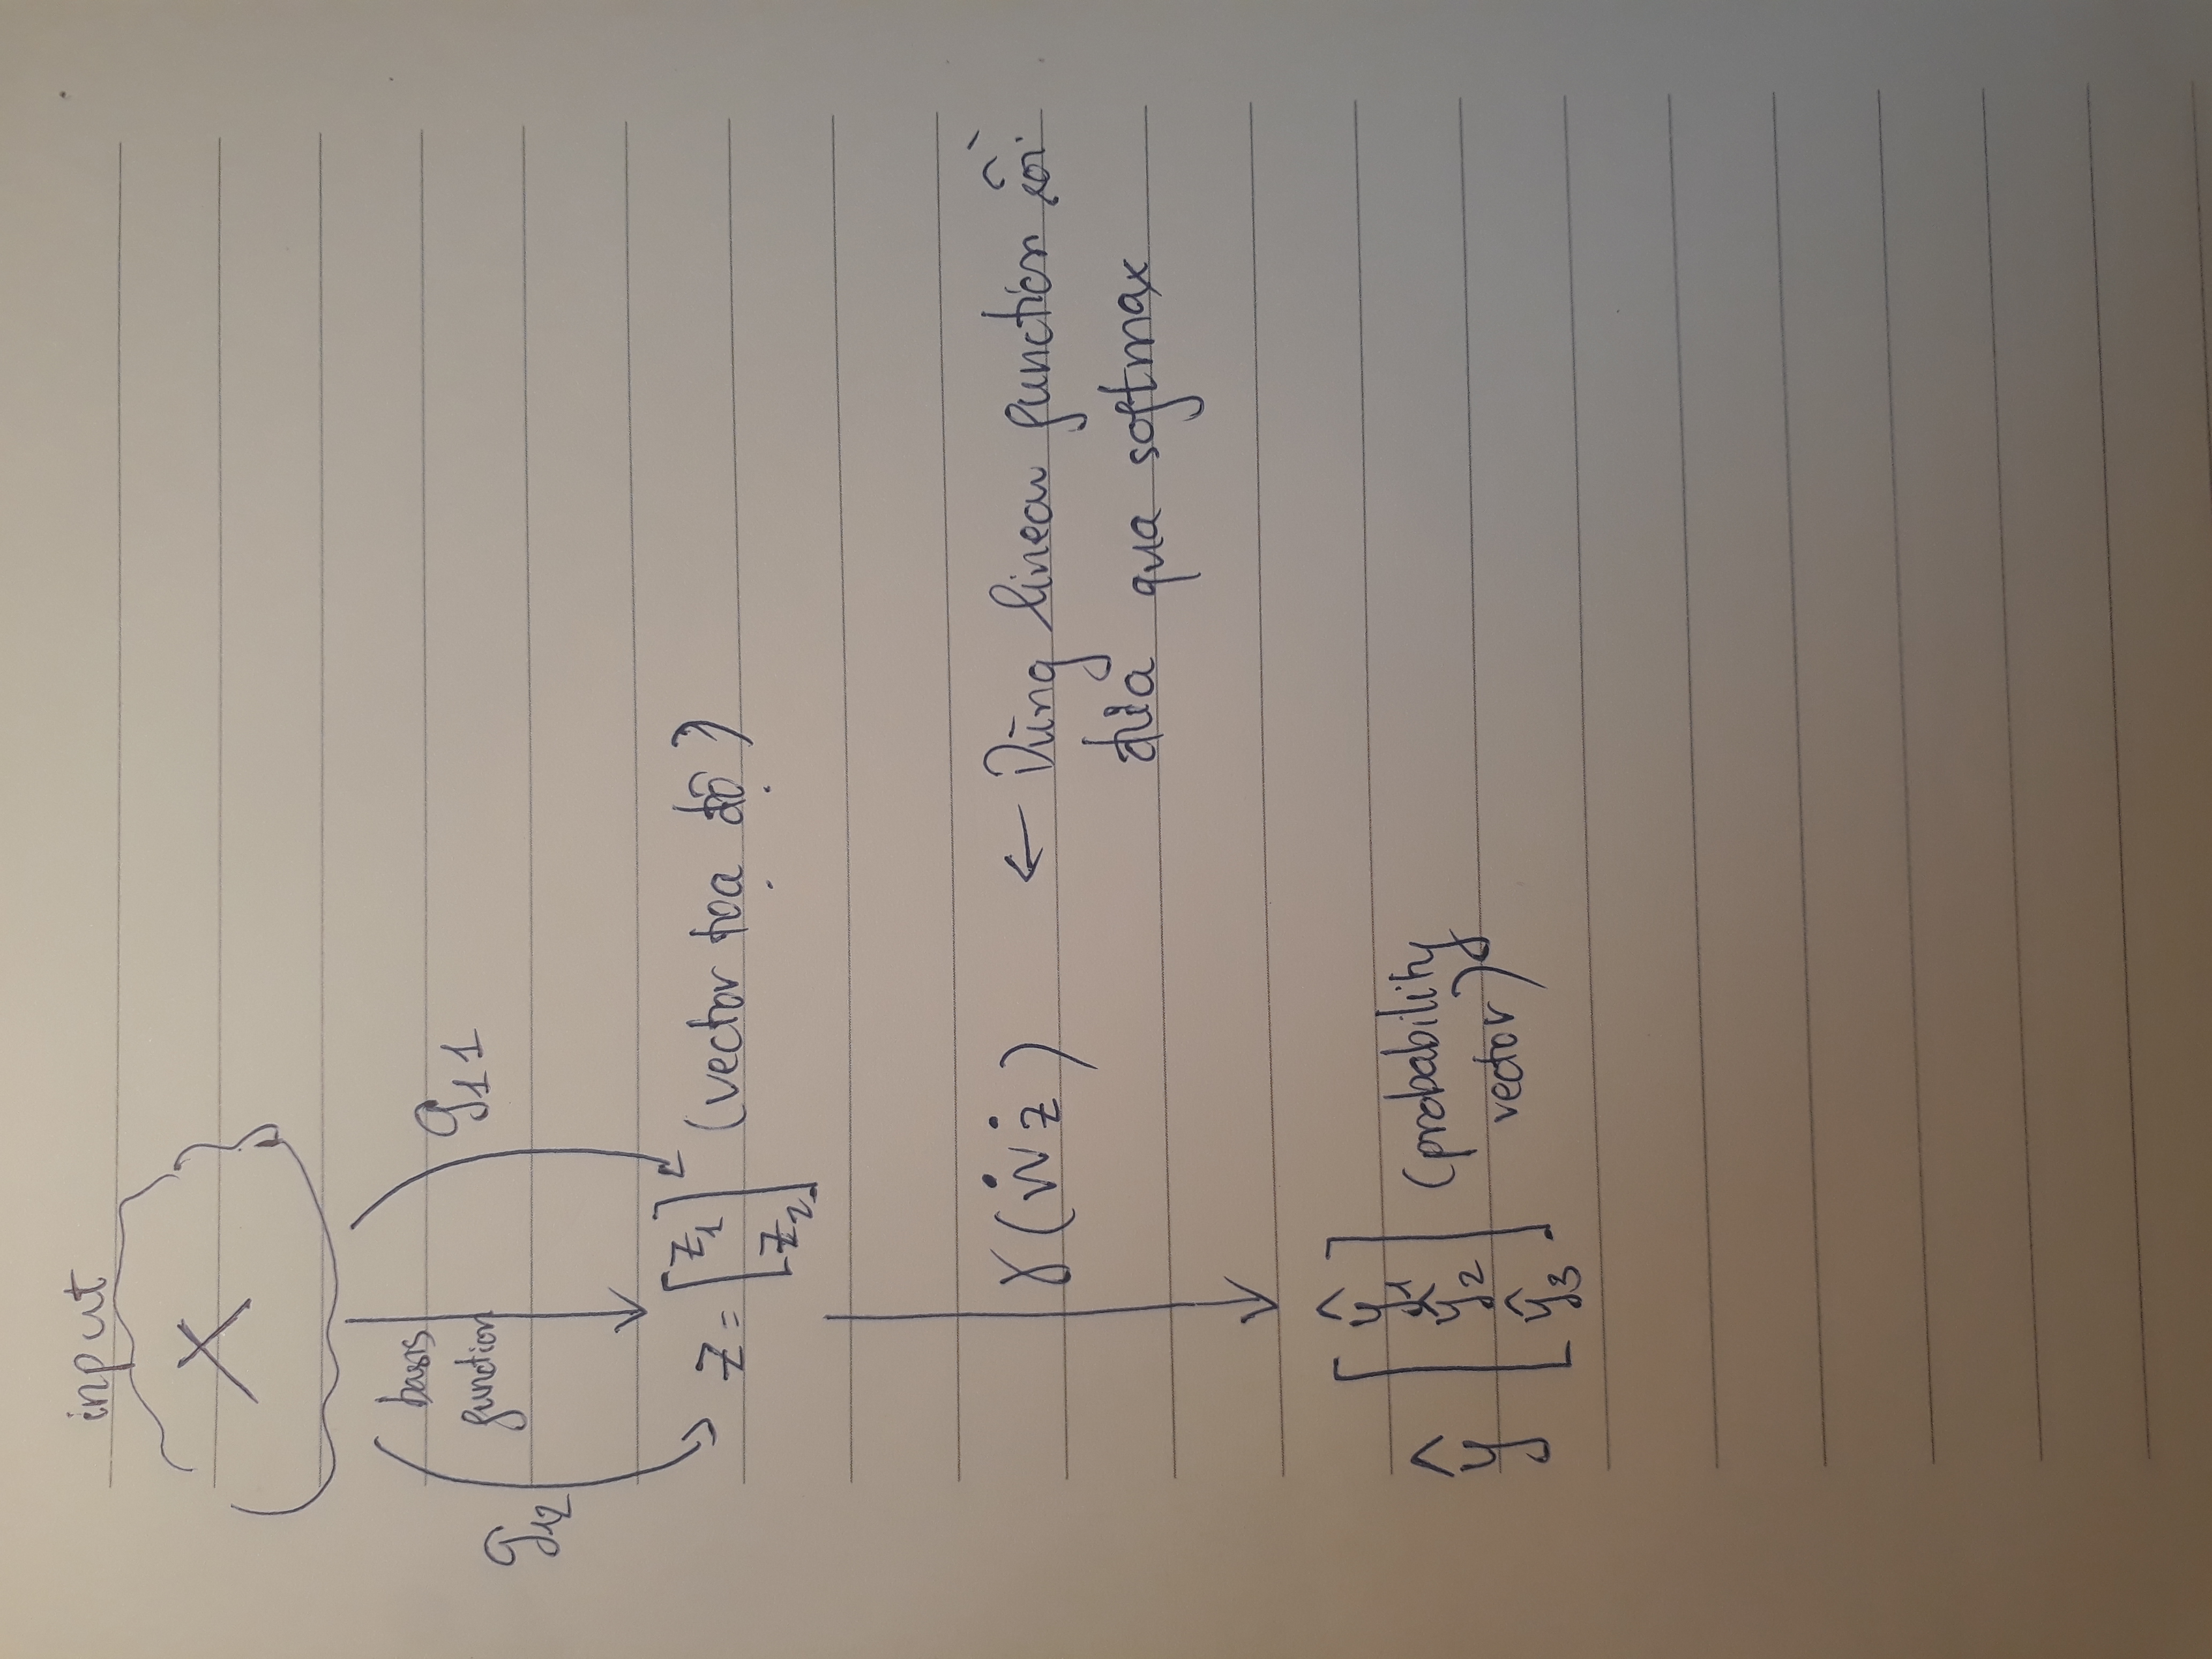 input
X
basis
g₁1
function
g₁₂
z = [z₁ z₂] (vector toạ độ)
γ(Ẇ ż) ← Dùng linear function rồi
đưa qua softmax
ŷ [ŷ₁ ŷ₂ ŷ₃] (probability
vector)